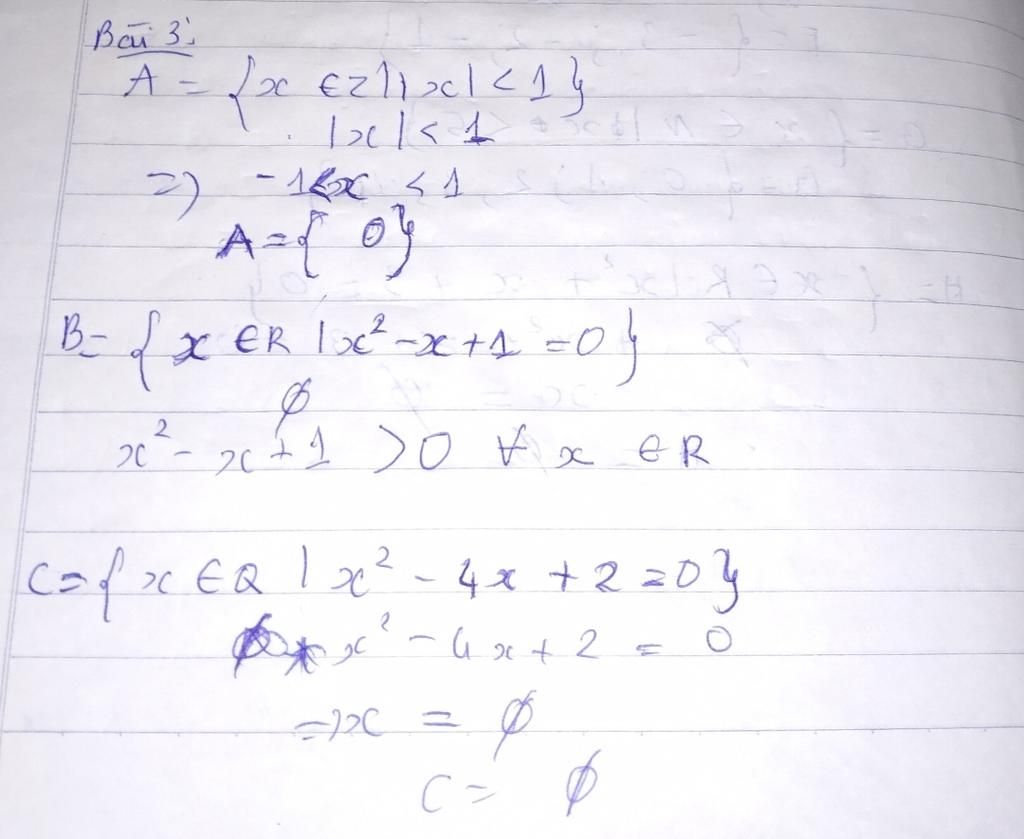 Bài 3:
A = {x ∈ Z | |x| < 1}
|x| < 1
=> -1 < x < 1
A = { 0}
B = {x ∈ R | x² - x + 1 = 0}
∅
x² - x + 1 > 0 ∀ x ∈ R
C = {x ∈ Q | x² - 4x + 2 = 0}
x² - 4x + 2 = 0
=> x = ∅
C = ∅